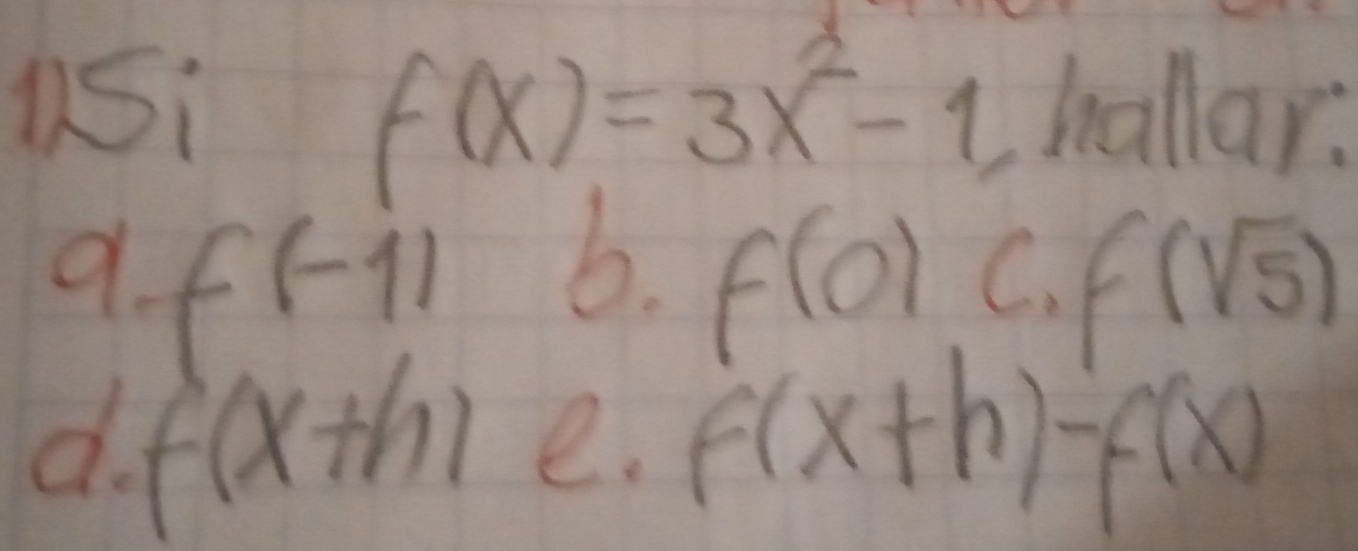 1) Si f(x) = 3x² - 1, hallar:
a. f(-1) b. f(0) c. f(√5)
d. f(x+h) e. f(x+h)-f(x)